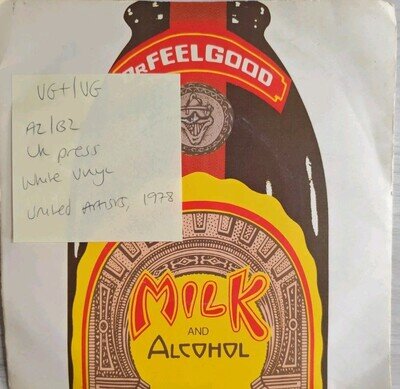 DR FEELGOOD
VG+/VG
A2/B2
Uk press
White Vinyl
United Artists, 1978
MILK
AND
ALCOHOL